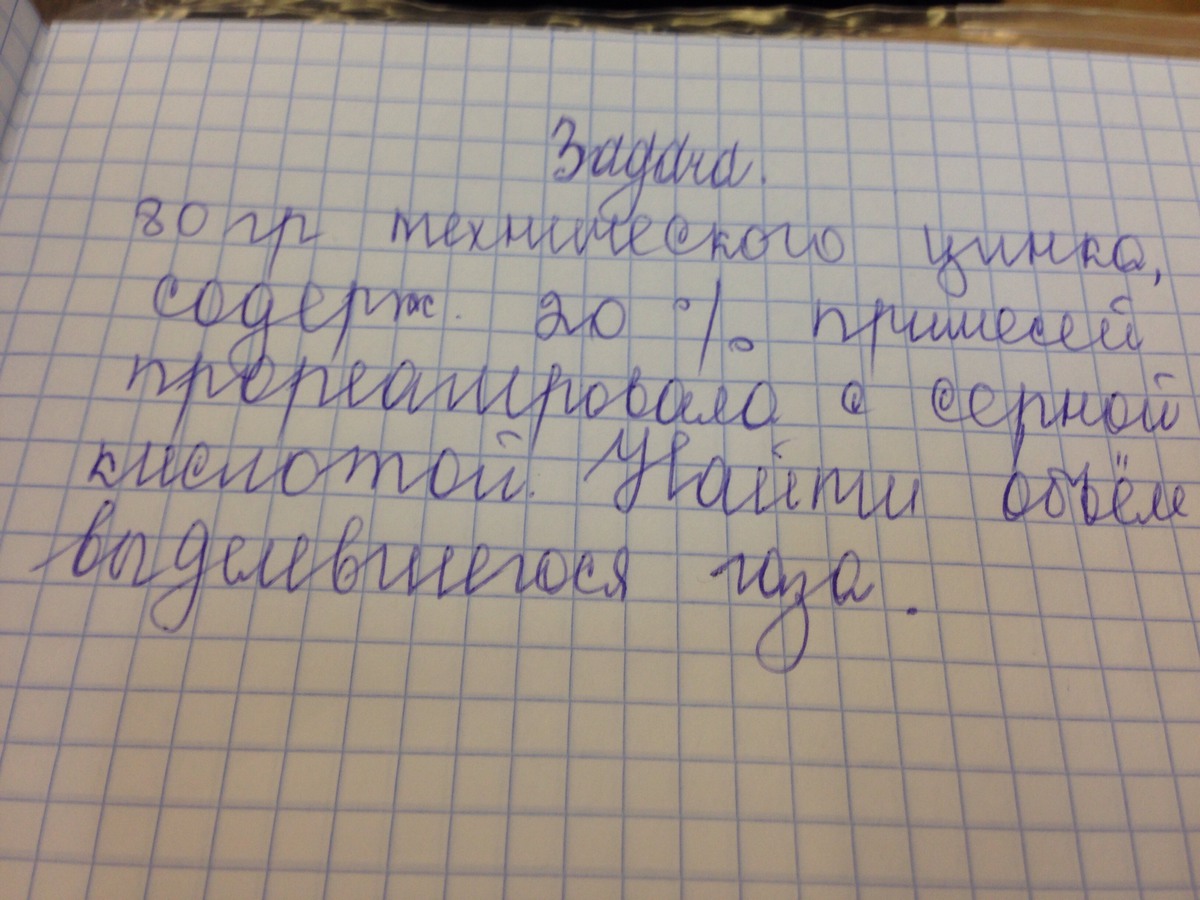 Задача.
80 гр технического цинка,
содерж. 20 % примесей
прореагировало с серной
кислотой. Найти объём
выделевшегося газа.